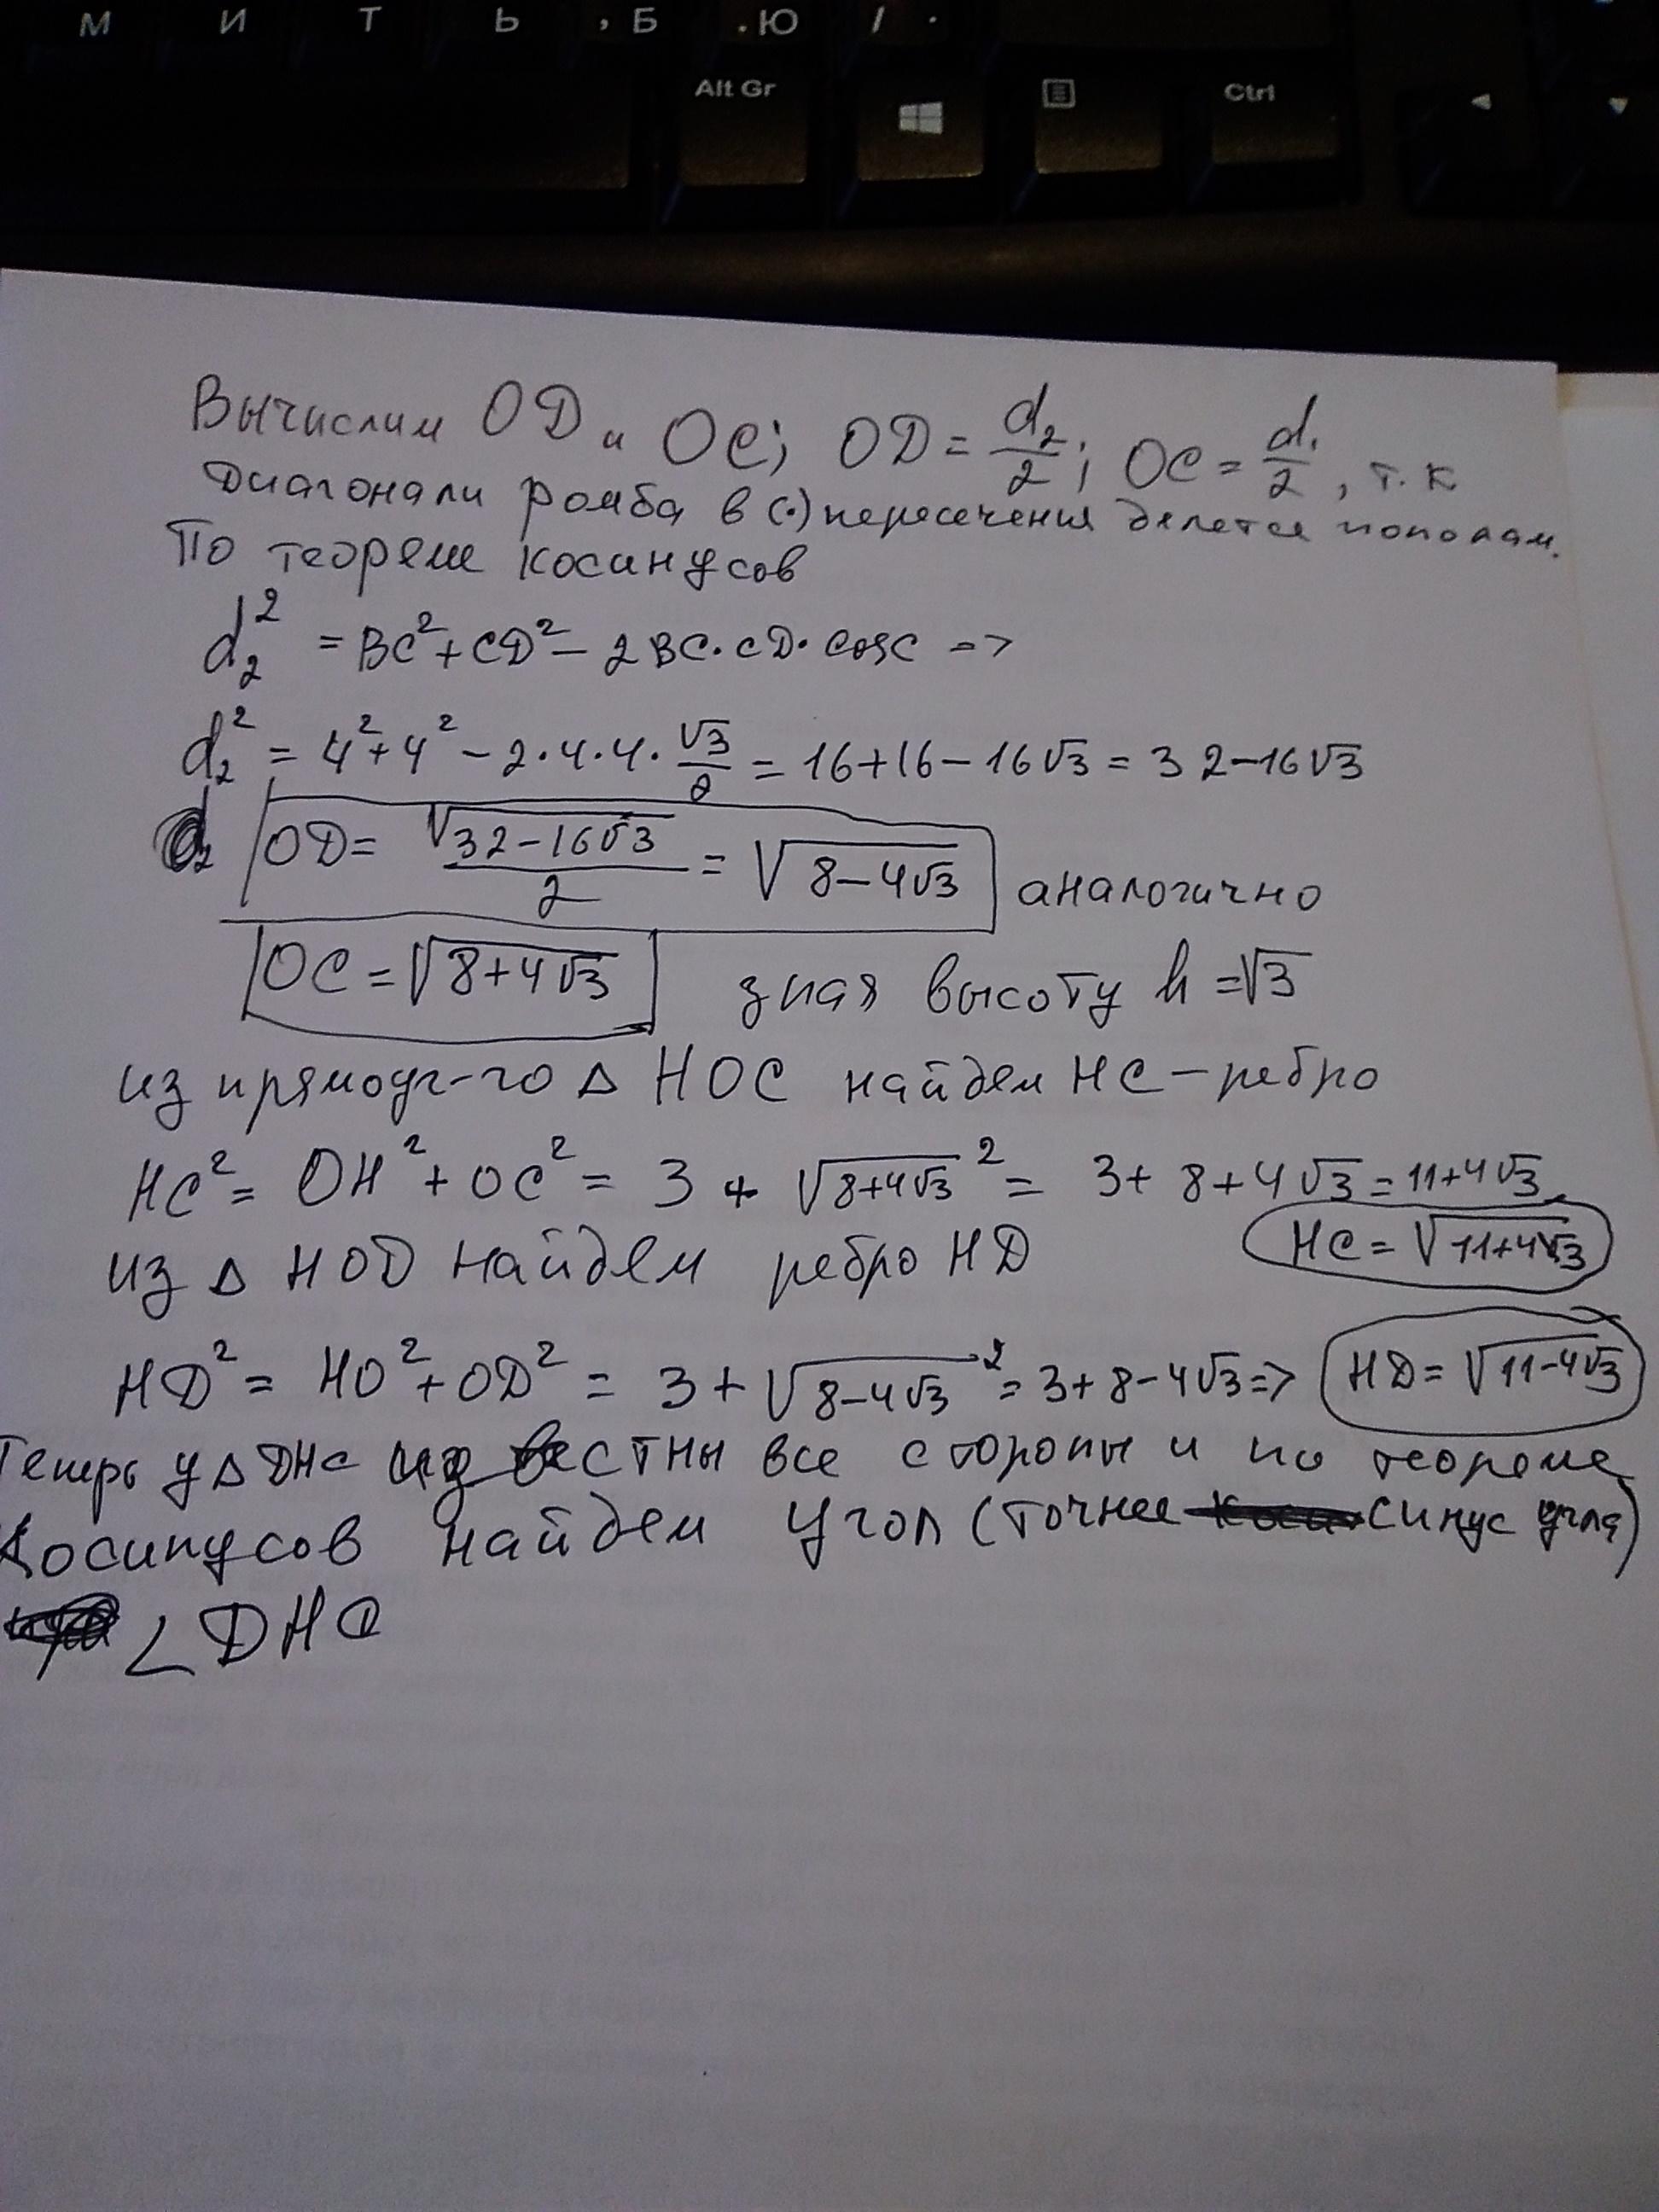 М И Т Ь , Б . Ю / .
Alt Gr Ctrl
Вычислим OD и OC; OD = d₂/2; OC = d₁/2, т.к
диагонали ромба в (·) пересечения делется пополам.
По теореме косинусов
d₂² = BC² + CD² − 2BC·CD·cosC =>
d₂² = 4² + 4² − 2·4·4·√3/2 = 16+16−16√3 = 32−16√3
OD = √(32−16√3)/2 = √(8−4√3) аналогично
OC = √(8+4√3) зная высоту h = √3
из прямоуг-го △ HOC найдем HC – ребро
HC² = OH² + OC² = 3 + √(8+4√3)² = 3+8+4√3 = 11+4√3
HC = √(11+4√3)
из △ HOD найдем ребро HD
HD² = HO² + OD² = 3 + √(8−4√3)² = 3+8−4√3 => HD = √(11−4√3)
Теперь у △ DHC известны все стороны и по теореме
косинусов найдем угол (точнее синус угла)
∠DHC